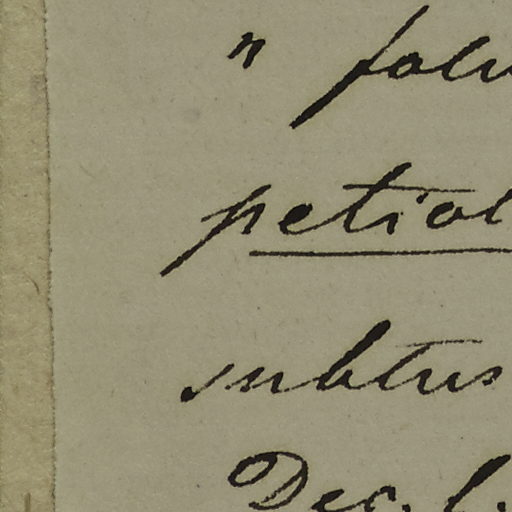 " foli
petiol
subtus
Dec. l.